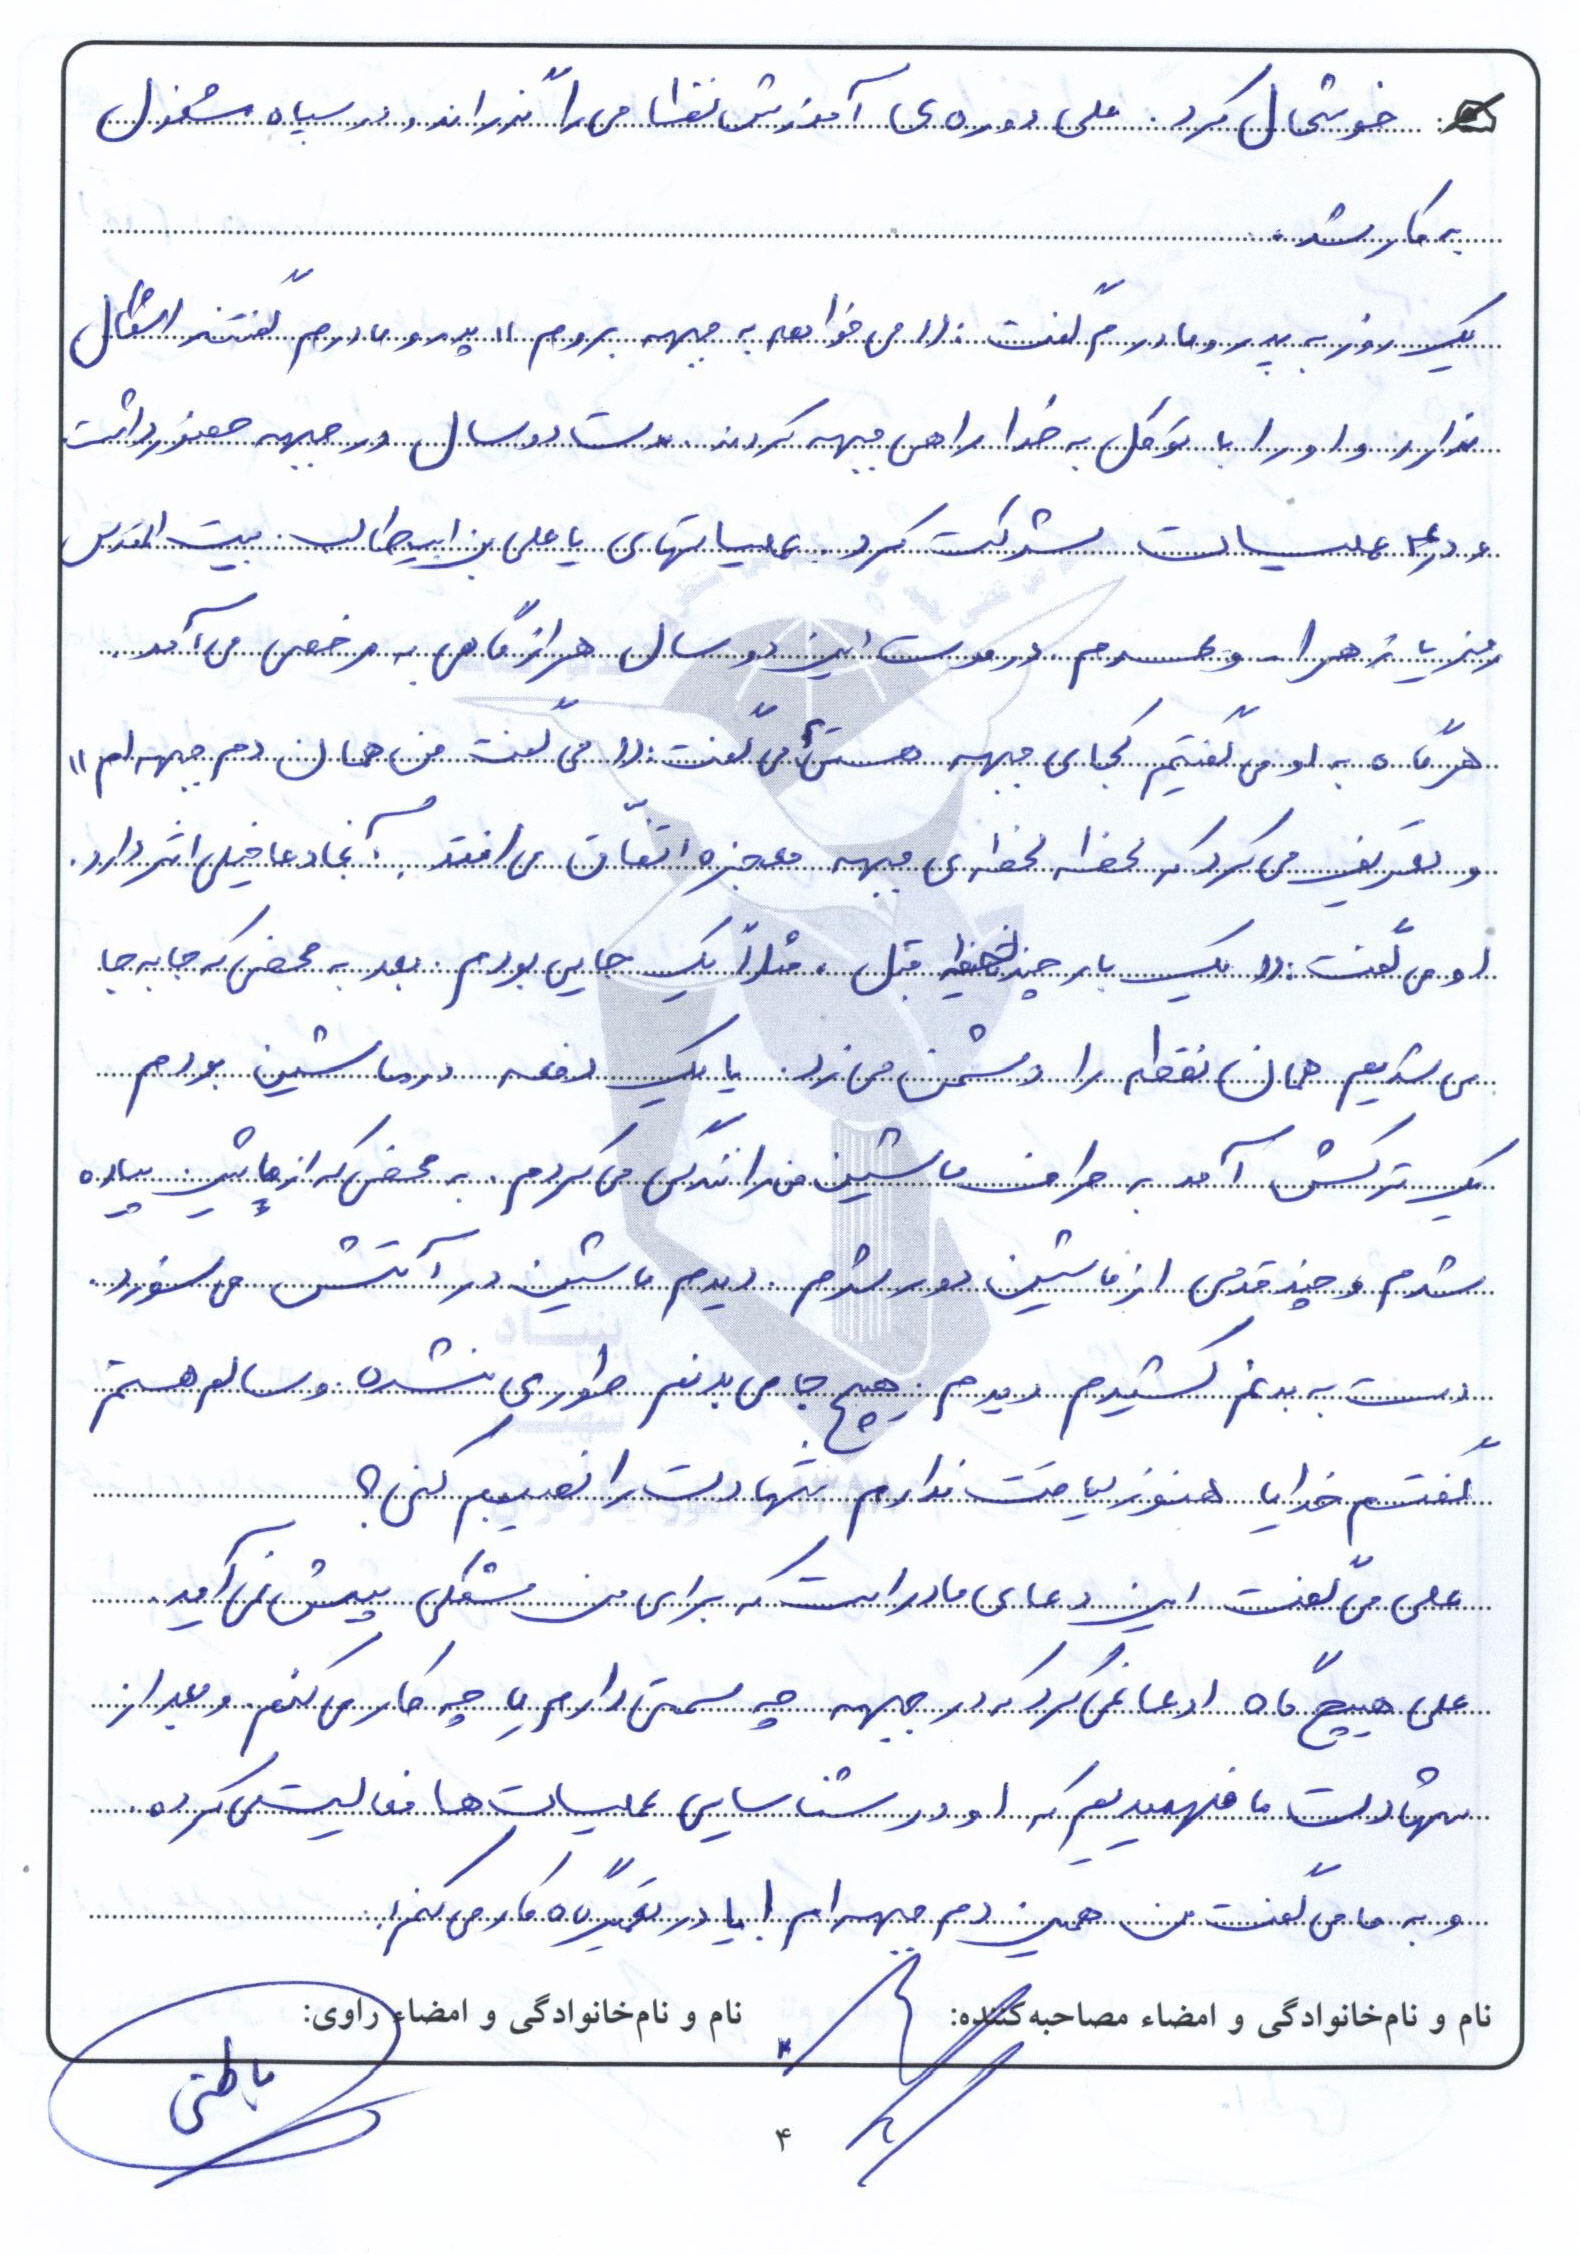 خوشحال کرد. علی دوره ی آموزش نظامی را گذراند و در سپاه مشغول
به کار شد.
یک روز به پدر و مادرم گفت: «می خواهم به جبهه بروم» پدر و مادرم گفتند اشکال
ندارد و او را با توکل به خدا راهی جبهه کردند. مدت دو سال در جبهه حضور داشت
و در عملیات شرکت کرد. عملیاتهای یا علی بن ابیطالب. بیت المقدس
رمز یا زهرا و محرم در مدت این دو سال هر از گاهی به مرخصی می آمد.
هر گاه به او می گفتیم کجای جبهه هستی؟ می گفت: «می گفت من همان دم جبهه ام»
و تعریف می کرد که لحظه لحظه ی جبهه معجزه اتفاق می افتد. آنجا دعا خیلی اثر دارد.
او می گفت: «یک بار چند لحظه قبل، مثلاً یک جایی بودم. بعد به محض که جا به جا
می شدیم همان نقطه را دشمن می زد. یا یک دفعه در ماشین بودم
یک ترکش آمد به طرف ماشین من رانندگی می کردم. به محض که از ماشین پیاده
شدم و چند قدمی از ماشین دور شدم. دیدم ماشین در آتش می سوزد.
دست به بدنم کشیدم دیدم. هیچ جا ی بدنم طوری نشده. و سالم هستم
گفتم خدایا هنوز لیاقت ندارم شهادت را نصیبم کنی؟
علی می گفت این دعای مادر است که برای من مشکلی پیش نمی آمد.
علی هیچ گاه ادعا نمی کرد که در جبهه چه سمتی دارم یا چه کار می کنم. و بعد از
شهادت ما فهمیدیم که او در شناسایی عملیات ها فعالیت می کرده.
و به ما می گفت من همین دم جبهه ام! یا در تعمیرگاه کار می کنم!.
نام و نام‌خانوادگی و امضاء مصاحبه‌کننده: نام و نام‌خانوادگی و امضاء راوی:
باطنی
۴